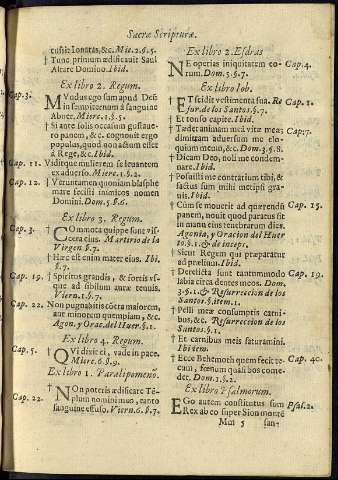 Sacræ Scripturæ.
cussit Ionatas, &c. Mic. 2. §. 5.
† Tunc primum ædificauit Saul
Altare Domino. Ibid.
Ex libro 2. Regum.
Cap. 3. MVndus ego sum apud Deũ
in sempiternum à sanguine
Abner. Mierc. 1. §. 5.
† Si ante solis occasum gustaue-
ro panem, &c. cognouit ergo
populus, quod non actum esset
à Rege, &c. Ibid.
Cap. 11. Viditque mulierem se lauantem
ex aduerso. Mierc. 1. §. 2.
Cap. 12. † Veruntamen quoniam blasphe
mare fecisti inimicos nomen
Domini. Dom. 5. §. 6.
Ex libro 3. Regum.
Cap. 3. † COmmota quippe sunt vis-
cera eius. Martyrio de la
Virgen §. 7.
† Hæc est enim mater eius. Ib.
§. 7.
Cap. 19. † Spiritus grandis, & fortis vs-
que ad sibilum auræ tenuis.
Viern. 1. §. 7.
Cap. 22. Non pugnabitis cõtra maiorem,
aut minorem quempiam, &c.
Agon. y Orac. del Huer. §. 1.
Ex libro 4. Regum.
Cap. 5. † QVi dixit ei, vade in pace.
Mierc. 6. §. 9.
Ex libro 1. Paralipomenõ.
Cap. 22. † NOn poteris ædificare Tẽ-
plum nomini meo, tanto
sanguine effuso. Viern. 6. §. 7.
Ex libro 2. Esdras
NE operias iniquitatem eo- Cap. 4.
rum. Dom. 5. §. 7.
Ex libro Iob.
ET scidit vestimenta sua. Re Cap. 1.
sur. de los Santos. §. 7.
† Et tonso capite. Ibid.
† Tædet animam meã vitæ meæ; Cap. 7.
dimittam aduersum me elo-
quium meum, &c. Dom. 3. §. 8.
† Dicam Deo, noli me condem-
nare. Ibid.
† Posuisti me contrarium tibi, &
factus sum mihi metipsi gra-
uis. Ibid.
† Cùm se mouerit ad quærendũ Cap. 15.
panem, nouit quod paratus sit
in manu eius tenebrarum dies.
Agonia, y Oracion del Huer
to §. 1. & deinceps.
† Sicut Regem qui præparatur
ad prælium. Ibid.
† Derelicta sunt tantummodo Cap. 19.
labia circa dentes meos. Dom.
3. §. 1. & Resurreccion de los
Santos. §. item. 1.
† Pelli meæ consumptis carni-
bus, &c. Resurreccion de los
Santos. §. 1.
† Et carnibus meis saturamini.
Ibidem.
† Ecce Behemoth quem feci te- Cap. 40.
cum, fœnum quasi bos come-
det. Dom. 1. §. 2.
Ex libro Psalmorum.
EGo autem constitutus sum Psal. 2.
Rex ab eo super Sion montẽ
Mm 5 san-